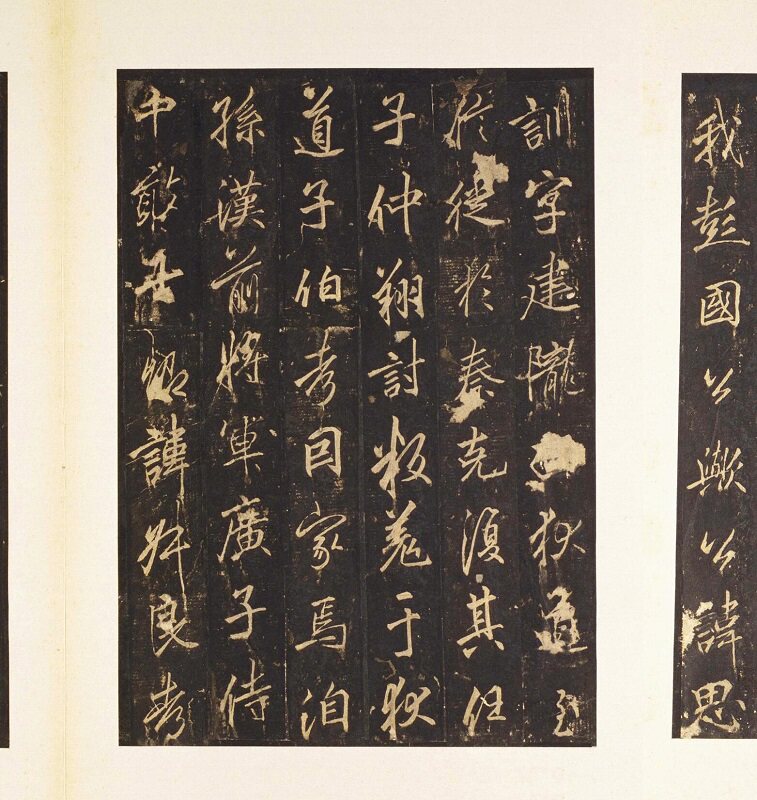 我彭國公歟公諱思
訓字建隴狄道至
徙於秦克復其任
子仲翔討叛羌于狄
道子伯考因家焉洎
孫漢前將軍廣子侍
中敢諱叔良考